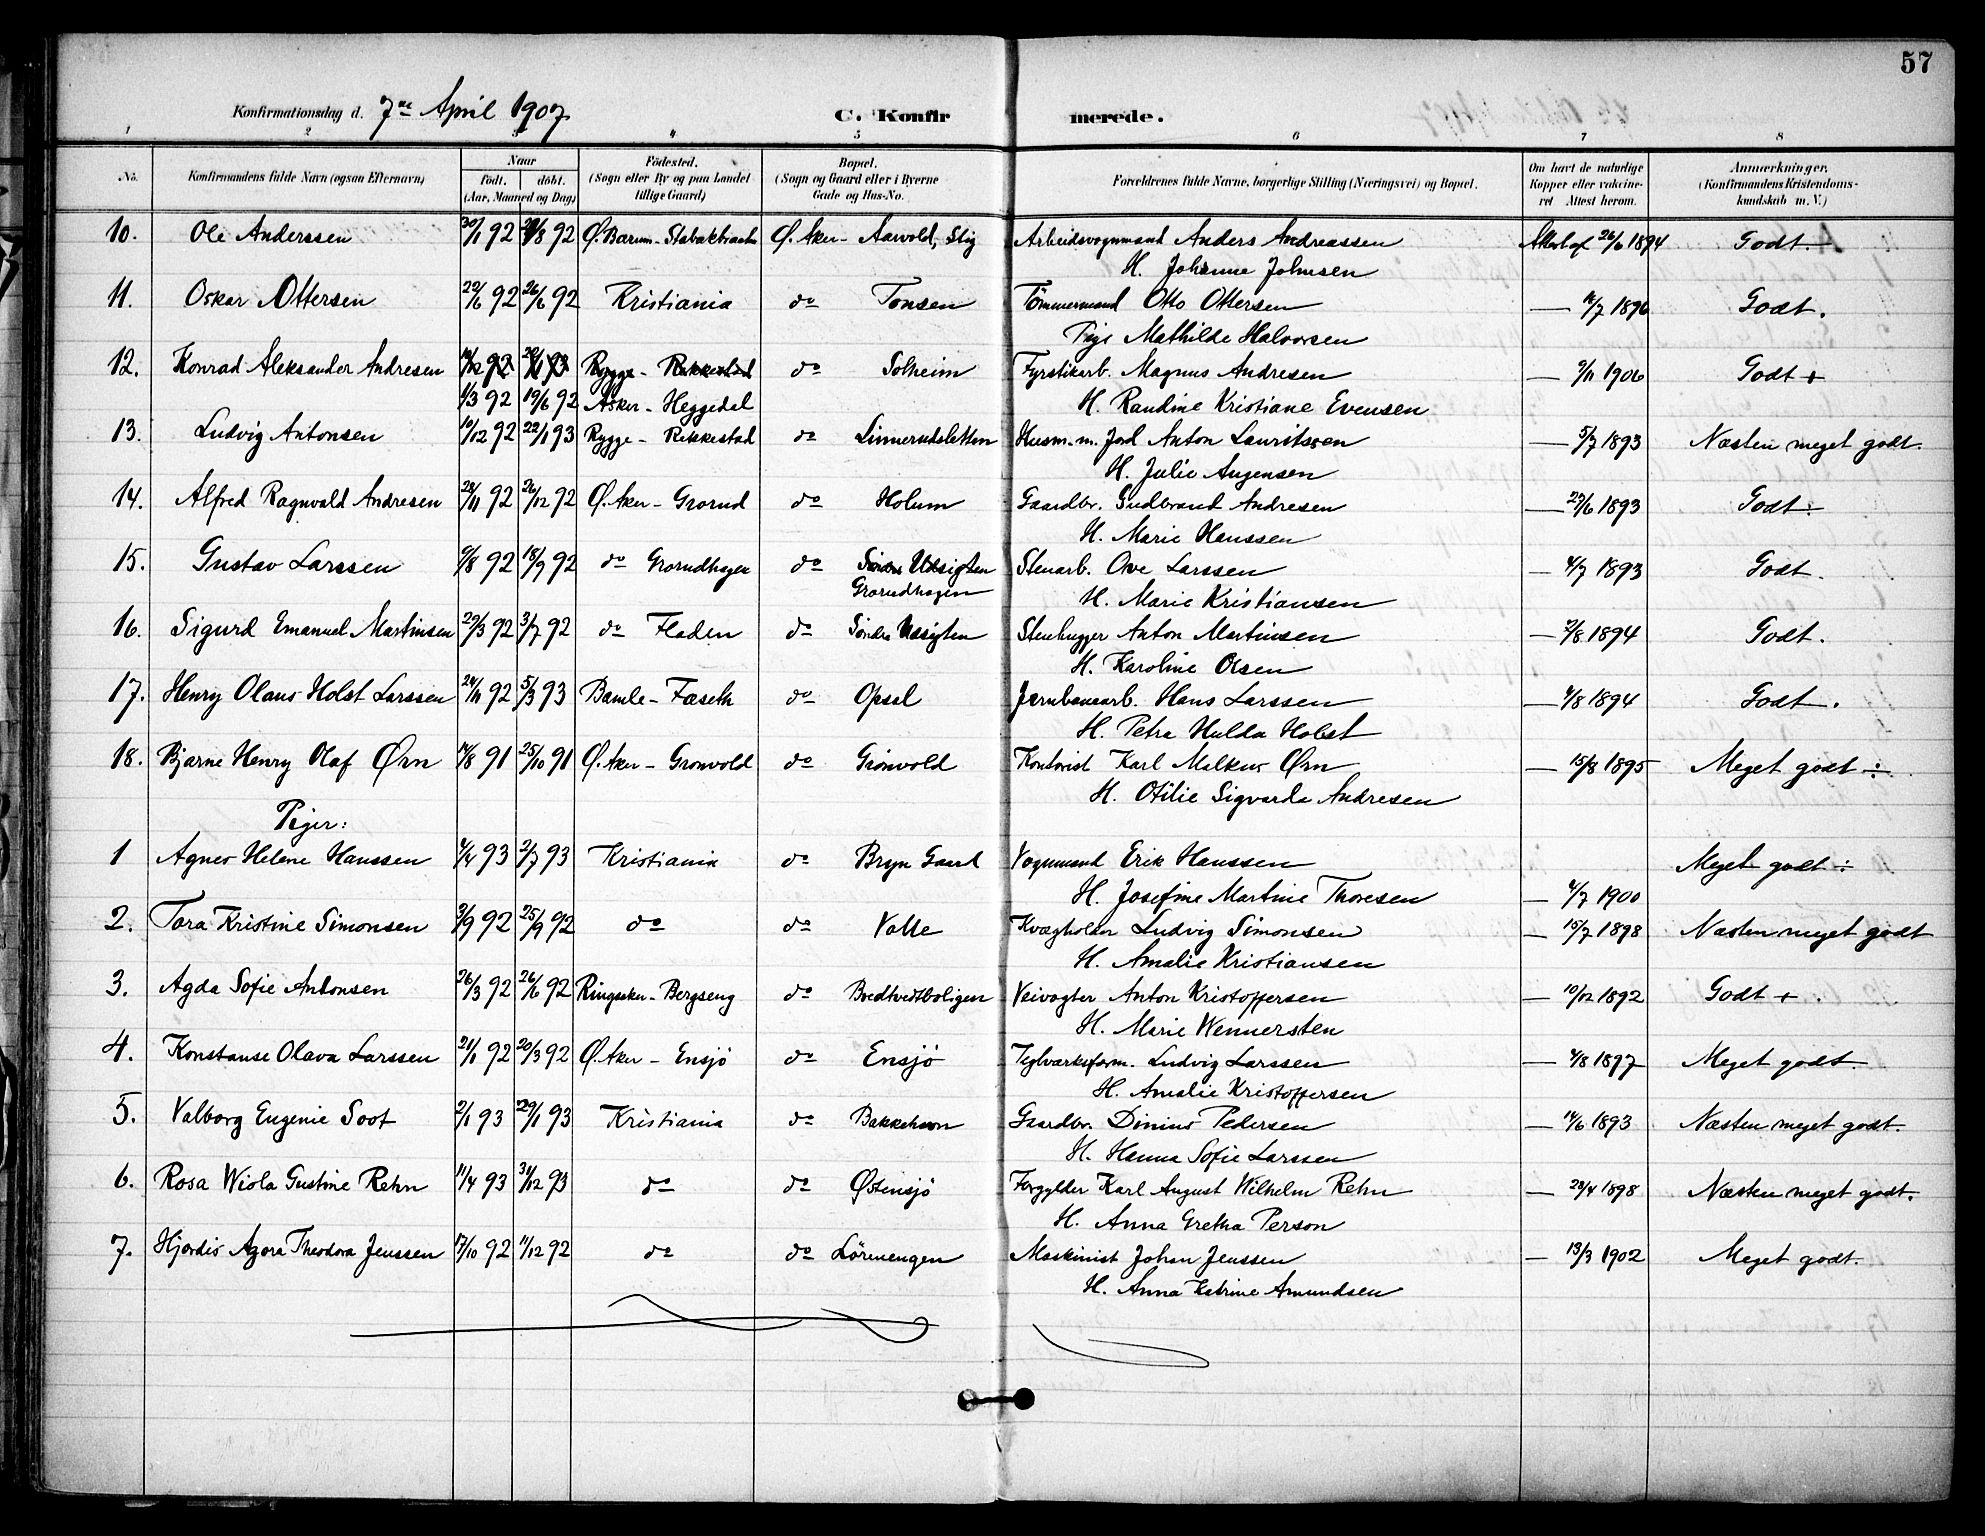 57
Konfirmationsdag d. 7de April 1907. C. Konfirmerede.
1 2 3 4 5 6 7 8
No. Konfirmandens fulde Navn (ogsaa Efternavn) Naar født. døbt. (Aar, Maaned og Dag) Fødested. (Sogn eller By og paa Landet tillige Gaard) Bopæl. (Sogn og Gaard eller i Byerne Gade og Hus-No. Forældrenes fulde Navne, borgerlige Stilling (Næringsvei) og Bopæl. Om havt de naturlige Kopper eller vakcineret Attest herom. Anmærkninger. (Konfirmandens Kristendomskundskab m. V.)
10. Ole Anderssen 30/1 92 /8 92 Ø. Bærum - Ø. Aker - Aarvold, Stig Arbeidsvognmand Anders Andreassen Attest af 26/6 1894 Godt.
H. Johanne Johnsen
11. Oskar Ottersen 22/6 92 26/6 92 Kristiania do Tonsen Tömmermand Otto Ottersen — 16/7 1896 Godt.
Pige Mathilde Halvorsen
12. Konrad Aleksander Andresen Rygge - Rekkestad do Solheim Fyrstikarb. Magnus Andresen — 9/11 1906 Godt +
1/3 92 19/6 92 Asker - Heggedal H. Randine Kristiane Evensen
13. Ludvig Antonsen 10/12 92 22/1 93 Rygge - Rekkestad do Linnerudsletten Husm. m. Jord Anton Lauritssen — 5/7 1893 Næsten meget godt.
H. Julie Augensen
14. Alfred Ragnvald Andresen 28/11 92 26/12 92 Ø. Aker - Grorud do Holum Gaardbr. Gudbrand Andresen — 27/6 1893 Godt ÷
H. Marie Hanssen
15. Gustav Larssen 9/8 92 18/9 92 do Grorudhagen do Søndre Udsigten Stenarb. Ove Larssen — 4/7 1893 Godt.
Grorudhagen H. Marie Kristiansen
16. Sigurd Emanuel Martinsen 29/3 92 3/7 92 do Fladen do Søndre Udsigten Stenhugger Anton Martinsen — 2/8 1894 Godt.
H. Karoline Olsen
17. Henry Olaus Holst Larssen 24/11 92 5/3 93 Bamle - Fæseth do Opsal Jernbanearb. Hans Larssen — 4/8 1894 Godt.
H. Petra Hulda Holst
18. Bjarne Henry Olaf Ørn 14/8 91 25/10 91 Ø. Aker - Grønvold do Grønvold Kontorist Karl Malkus Ørn — 15/8 1895 Meget godt ÷
H. Otilie Sigvarda Andresen
Piger:
1 Agnes Helene Hanssen 4/4 93 2/7 93 Kristiania do Bryn Gaard Vognmand Erik Hanssen Meget godt ÷
H. Josefine Martine Thoresen — 4/7 1900
2. Tora Kristine Simonsen 3/9 92 25/9 92 do do Valle Kvægholder Ludvig Simonsen — 15/7 1898 Næsten meget godt
H. Amalie Kristiansen
3. Agda Sofie Antonsen 26/3 92 26/6 92 Ringsaker - Bergseng do Bredtvedtboligen Veivogter Anton Kristoffersen — 10/12 1892 Godt + .
H. Marie Wennersten
4. Konstanse Olava Larssen 21/1 92 20/3 92 Ø. Aker - Ensjö do Ensjö Teglværksform. Ludvig Larssen — 4/8 1897 Meget godt.
H. Amalie Kristoffersen
5. Valborg Eugenie Soot 2/1 93 29/1 93 Kristiania do Bakkehavn Gaardbr. Dinius Pedersen — 14/6 1893 Næsten meget godt.
H. Hanna Sofie Larssen
6. Rosa Wiola Gustine Rehn 11/4 93 31/12 93 do do Østensjö Forgylder Karl August Wilhelm Rehn — 28/4 1898 Næsten meget godt.
H. Anna Gretha Person
7. Hjørdis Agora Theodora Jenssen 17/10 92 11/12 92 do do Lörenengen Maskinist Johan Jenssen — 13/3 1902 Meget godt.
H. Anna Katrine Amundsen